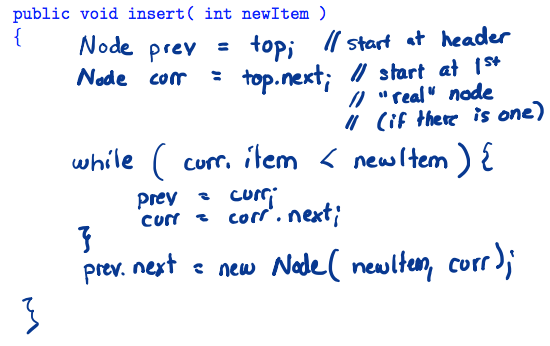 public void insert( int newItem )
{
Node prev = top; // start at header
Node curr = top.next; // start at 1st
// "real" node
// (if there is one)
while ( curr.item < newItem ) {
prev = curr;
curr = curr.next;
}
prev.next = new Node( newItem, curr);
}